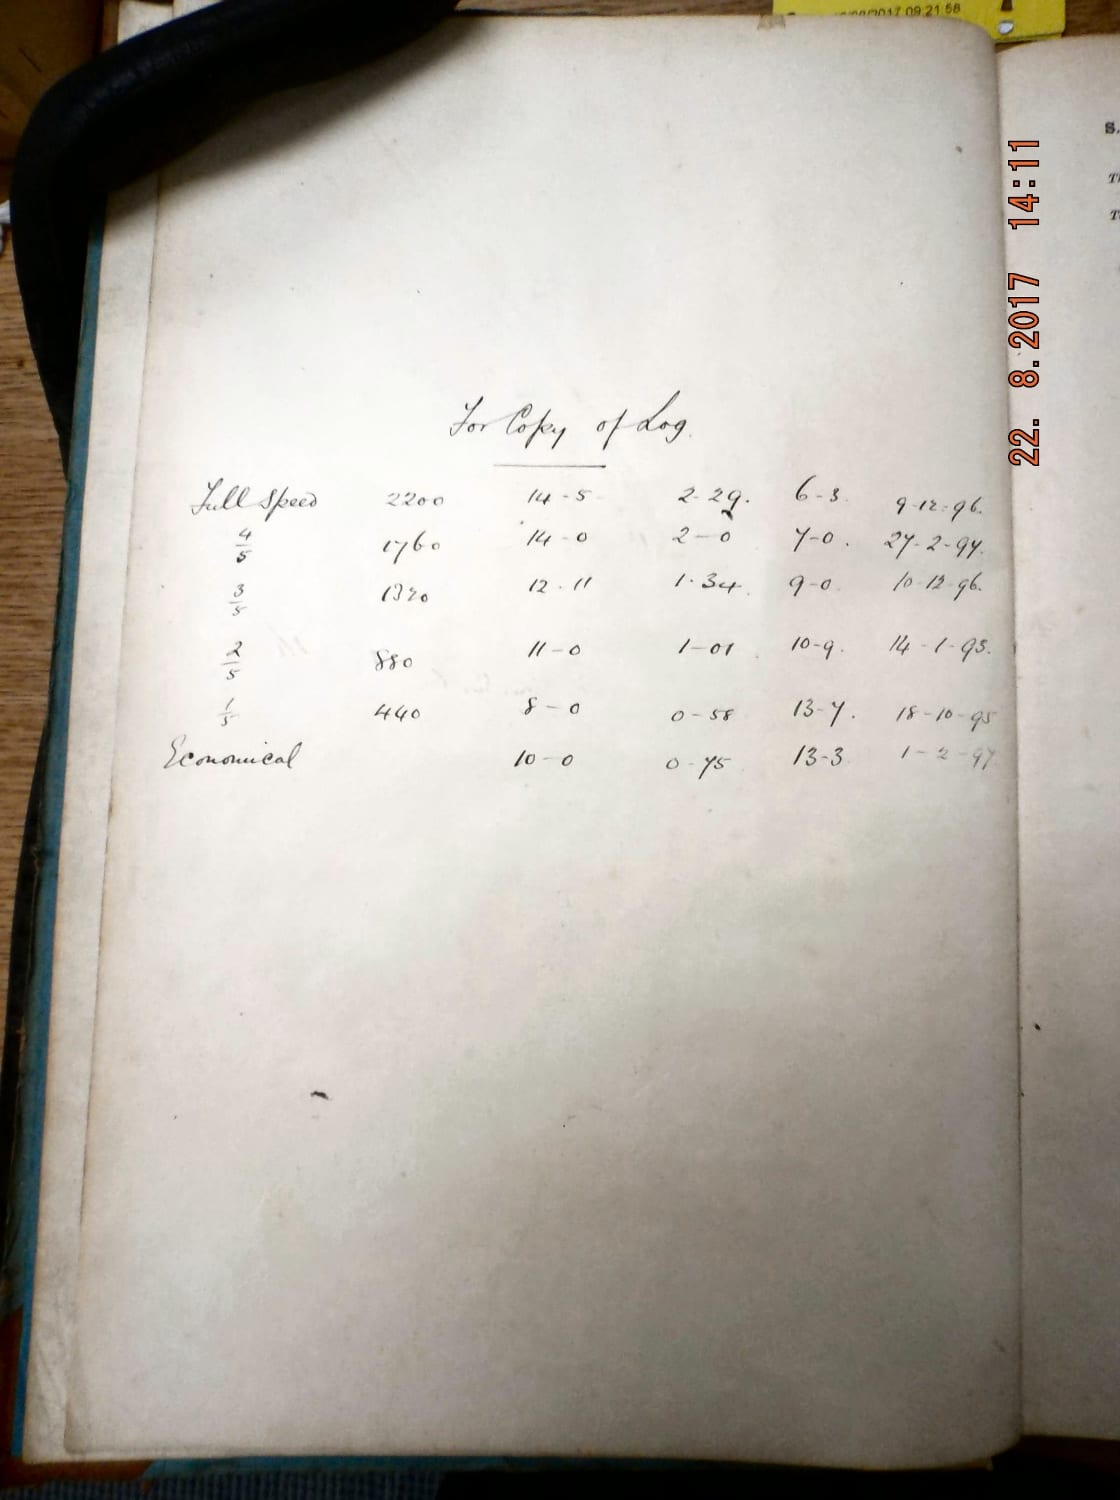 09:21:58
S.
22. 8.2017 14:11
For Copy of Log.
Full Speed 2200 14-5 2-29. 6-3. 9-12-96.
4/5 1760 14-0 2-0 7-0. 27-2-97.
3/5 1320 12.11 1.34. 9-0 10-12-96.
2/5 880 11-0 1-01 10-9. 14-1-93.
1/5 440 8-0 0-58 13-7. 18-10-95
Economical 10-0 0-75 13-3 1-2-97